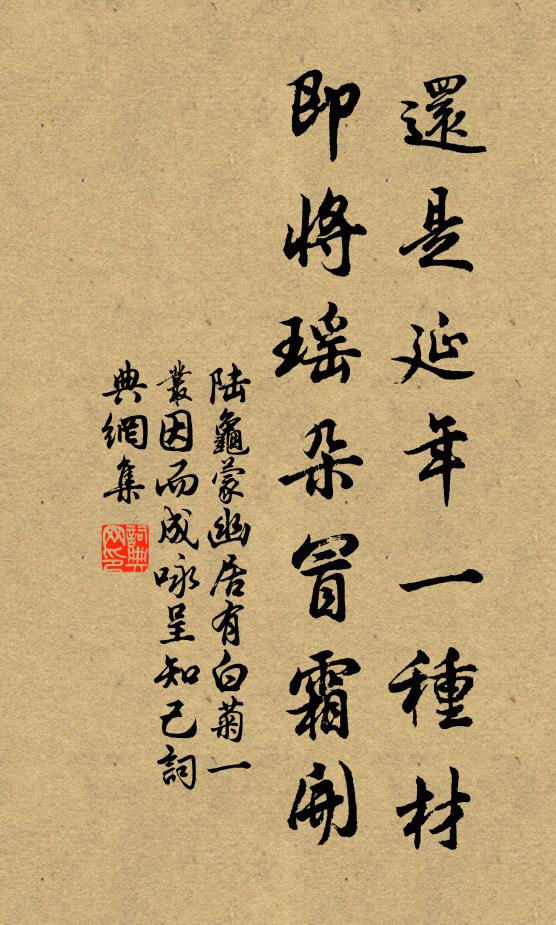 還是延年一種材
即將瑤朵冒霜開
陆龜蒙幽居有白菊一
叢因而成咏呈知己詞
典網集
詞典网印